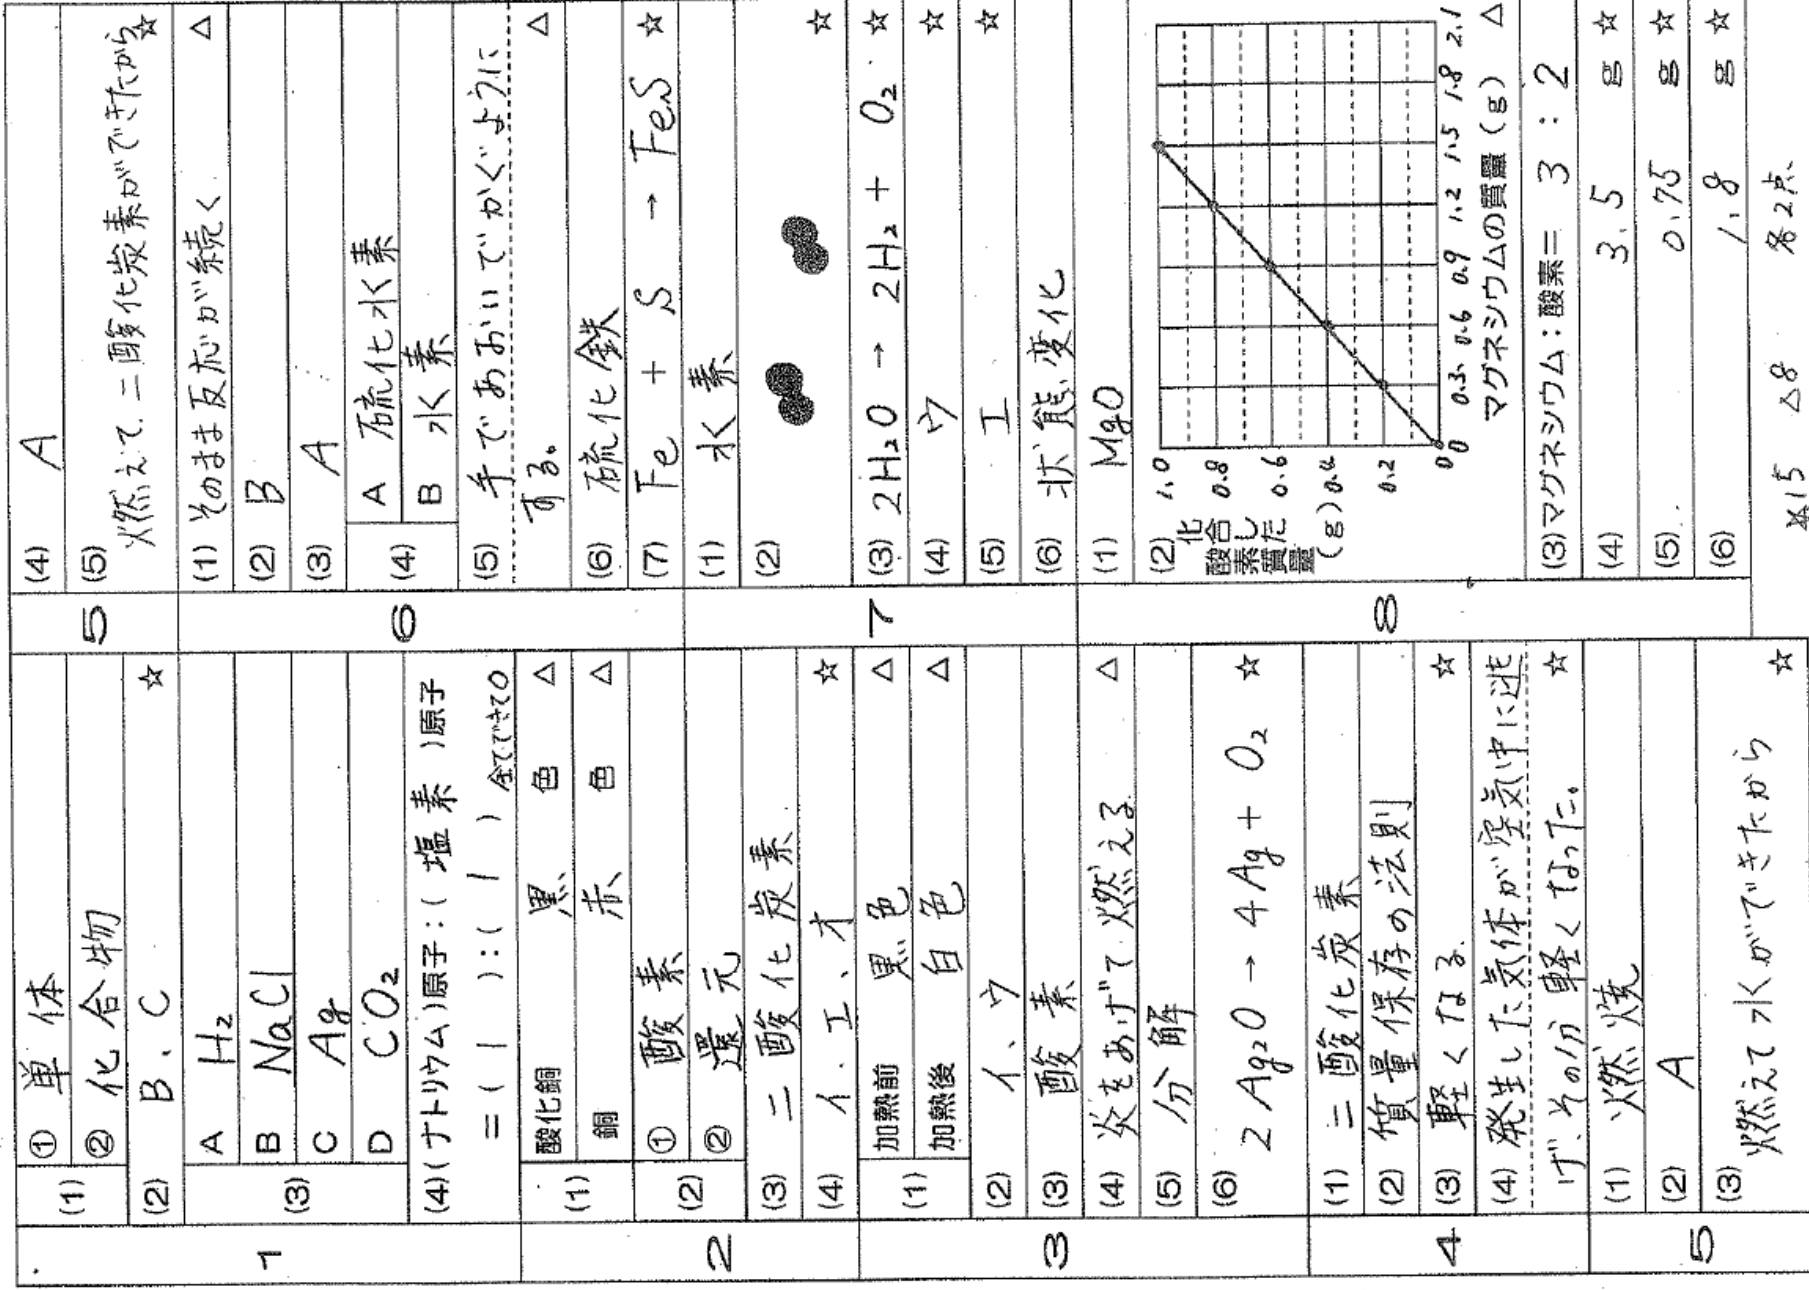 1
(1) ① 単体
② 化合物
(2) B、C ☆
(3) A H₂
B NaCl
C Ag
D CO₂
(4)(ナトリウム)原子：(塩素)原子
＝(1)：(1) 全てできて○
2
(1) 酸化銅 黒 色 △
銅 赤 色 △
(2) ① 酸素
② 還元
(3) 二酸化炭素
(4) イ、エ、オ ☆
3
(1) 加熱前 黒色 △
加熱後 白色 △
(2) イ、ウ
(3) 酸素
(4) 炎をあげて燃える △
(5) 分解
(6) 2Ag₂O → 4Ag + O₂ ☆
4
(1) 二酸化炭素
(2) 質量保存の法則
(3) 軽くなる。 ☆
(4) 発生した気体が空気中に逃
げ、その分軽くなった。 ☆
5
(1) 燃焼
(2) A
(3) 燃えて水ができたから ☆
5
(4) A
(5) 燃えて、二酸化炭素ができたから ☆
6
(1) そのまま反応が続く △
(2) B
(3) A
(4) A 硫化水素
B 水素
(5) 手であおいでかぐように
する。 △
(6) 硫化鉄
(7) Fe + S → FeS ☆
7
(1) 水素
(2) ☆
(3) 2H₂O → 2H₂ + O₂ ☆
(4) ウ ☆
(5) エ ☆
(6) 状態変化
8
(1) MgO
(2) 化合した
酸素の質量
(g)
1.0
0.8
0.6
0.4
0.2
0
0 0.3 0.6 0.9 1.2 1.5 1.8 2.1
マグネシウムの質量(g) △
(3)マグネシウム：酸素＝ 3：2
(4) 3.5 g ☆
(5) 0.75 g ☆
(6) 1.8 g ☆
△8 各2点